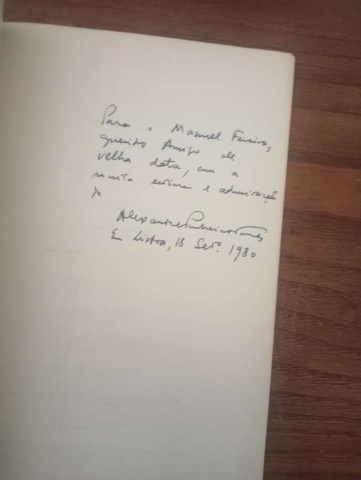 Para o Manuel Ferreira,
querido Amigo de
velha data, com a
muita estima e admiração
do
Alexandre Pinheiro Torres
Em Lisboa, 18 Setº. 1980